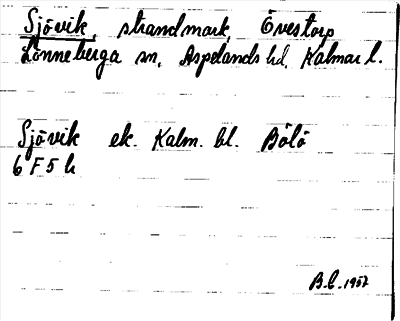 Sjövik, strandmark, Övestorp
Lönneberga sn, Aspelands hd, Kalmar l.
Sjövik ek. Kalm. bl. Bölö
6 F 5 h
B.C. 1957